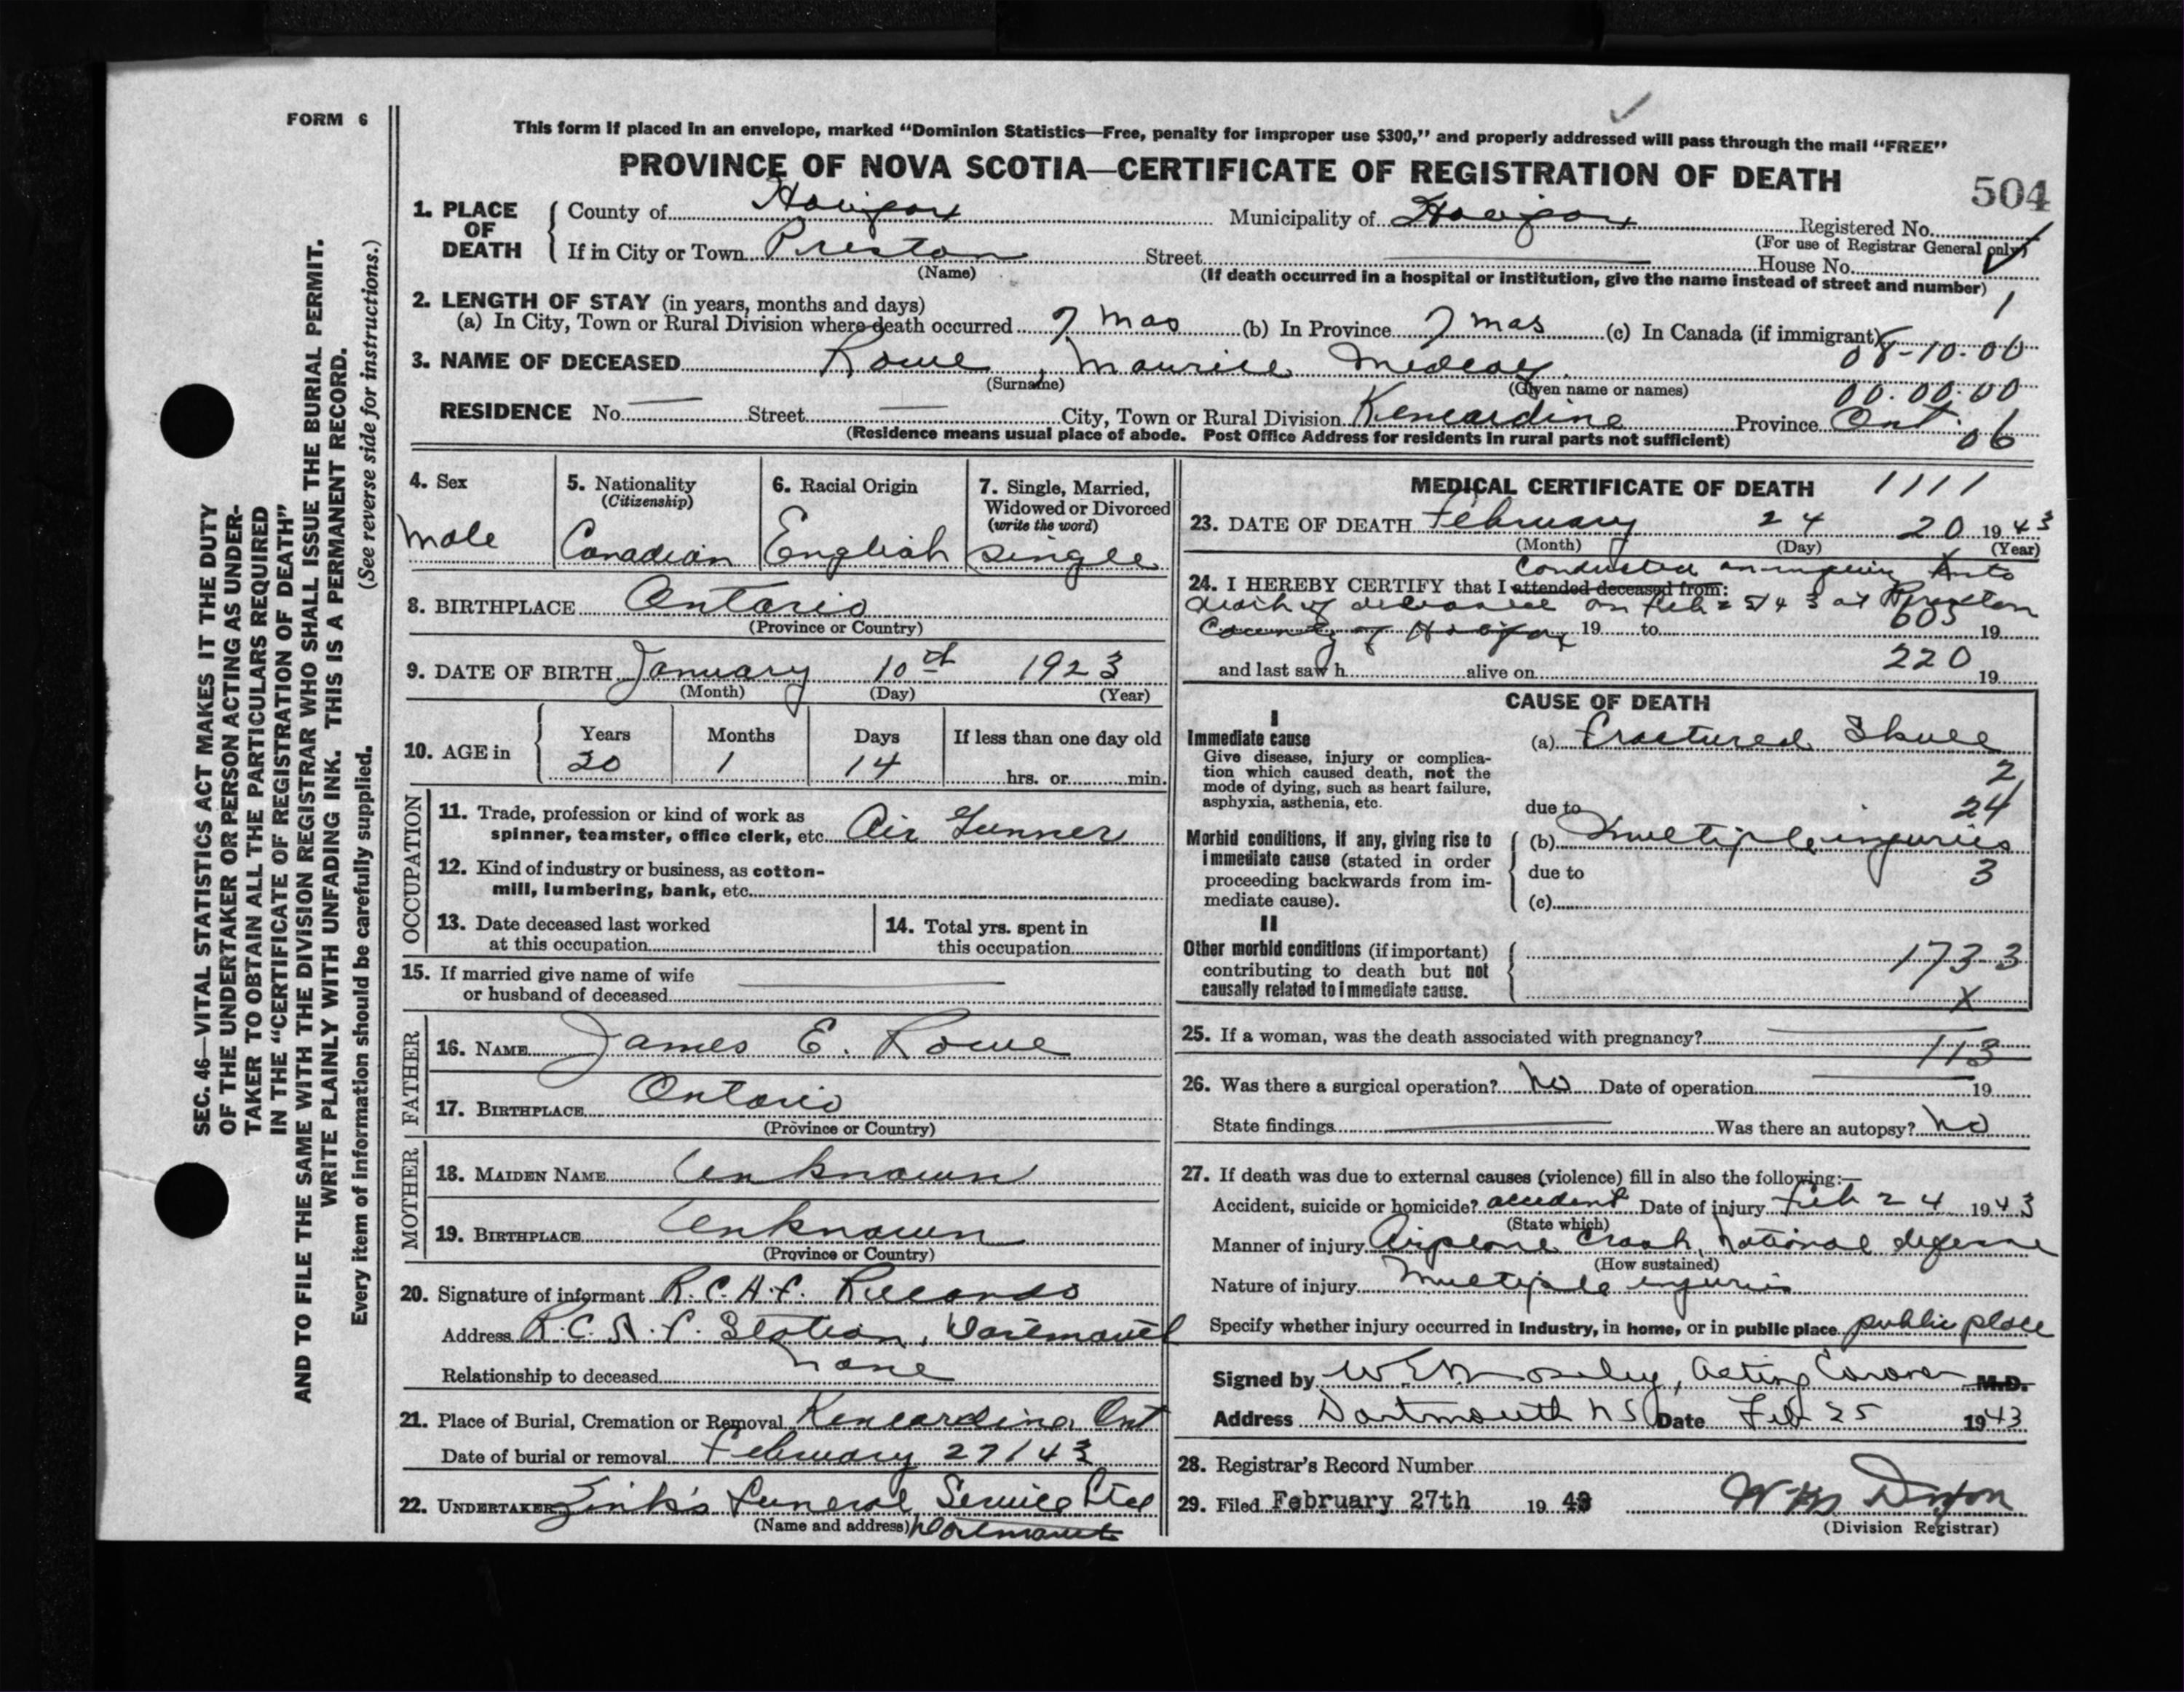 FORM 6
SEC. 46—VITAL STATISTICS ACT MAKES IT THE DUTY
OF THE UNDERTAKER OR PERSON ACTING AS UNDER-
TAKER TO OBTAIN ALL THE PARTICULARS REQUIRED
IN THE "CERTIFICATE OF REGISTRATION OF DEATH"
AND TO FILE THE SAME WITH THE DIVISION REGISTRAR WHO SHALL ISSUE THE BURIAL PERMIT.
WRITE PLAINLY WITH UNFADING INK. THIS IS A PERMANENT RECORD.
Every item of information should be carefully supplied. (See reverse side for instructions.)
This form if placed in an envelope, marked "Dominion Statistics—Free, penalty for improper use $300," and properly addressed will pass through the mail "FREE"
PROVINCE OF NOVA SCOTIA—CERTIFICATE OF REGISTRATION OF DEATH
504
1. PLACE OF DEATH
County of Halifax Municipality of Halifax Registered No.
(For use of Registrar General only)
If in City or Town Preston Street House No.
(Name) (If death occurred in a hospital or institution, give the name instead of street and number)
1
2. LENGTH OF STAY (in years, months and days)
(a) In City, Town or Rural Division where death occurred 7 mos (b) In Province 7 mos (c) In Canada (if immigrant)
08-10-00
3. NAME OF DECEASED Rowe, Maurice
(Surname) (Given name or names)
00.00.00
RESIDENCE No. — Street — City, Town or Rural Division Kencardine Province Ont.
06
(Residence means usual place of abode. Post Office Address for residents in rural parts not sufficient)
4. Sex
male
5. Nationality
(Citizenship)
Canadian
6. Racial Origin
English
7. Single, Married,
Widowed or Divorced
(write the word)
single
8. BIRTHPLACE Ontario
(Province or Country)
9. DATE OF BIRTH January 10th 1923
(Month) (Day) (Year)
10. AGE in
Years Months Days If less than one day old
20 1 14 hrs. or min.
OCCUPATION
11. Trade, profession or kind of work as
spinner, teamster, office clerk, etc. Air Gunner
12. Kind of industry or business, as cotton-
mill, lumbering, bank, etc.
13. Date deceased last worked
at this occupation
14. Total yrs. spent in
this occupation
15. If married give name of wife
or husband of deceased
FATHER
16. NAME James E. Rowe
17. BIRTHPLACE Ontario
(Province or Country)
MOTHER
18. MAIDEN NAME Unknown
19. BIRTHPLACE Unknown
(Province or Country)
20. Signature of informant R.C.A.F. Records
Address R.C.A.F. Station, Dartmouth
Relationship to deceased none
21. Place of Burial, Cremation or Removal Kencardine Ont
Date of burial or removal February 27/43
22. UNDERTAKER Zink's Funeral Service Ltd
(Name and address) Dartmouth
MEDICAL CERTIFICATE OF DEATH 1111
23. DATE OF DEATH February 24 20 1943
(Month) (Day) (Year)
Conducted an inquiry into
24. I HEREBY CERTIFY that I attended deceased from:
death of deceased on Feb 25/43 at Preston
County of Halifax 19 to 605 19
220
and last saw h alive on 19
CAUSE OF DEATH
I
Immediate cause
Give disease, injury or complica-
tion which caused death, not the
mode of dying, such as heart failure,
asphyxia, asthenia, etc.
(a) Fractured Skull
2
due to 24
Morbid conditions, if any, giving rise to
immediate cause (stated in order
proceeding backwards from im-
mediate cause).
(b) Multiple injuries
due to 3
(c)
II
Other morbid conditions (if important)
contributing to death but not
causally related to immediate cause.
173-3
X
25. If a woman, was the death associated with pregnancy?
113
26. Was there a surgical operation? No Date of operation 19
State findings Was there an autopsy? No
27. If death was due to external causes (violence) fill in also the following:—
Accident, suicide or homicide? accident Date of injury Feb 24 1943
(State which)
Manner of injury Airplane Crash, National defense
(How sustained)
Nature of injury Multiple injuries
Specify whether injury occurred in industry, in home, or in public place public place
Signed by Acting Coroner M.D.
Address Dartmouth NS Date Feb 25 1943
28. Registrar's Record Number
29. Filed February 27th 1943
(Division Registrar)